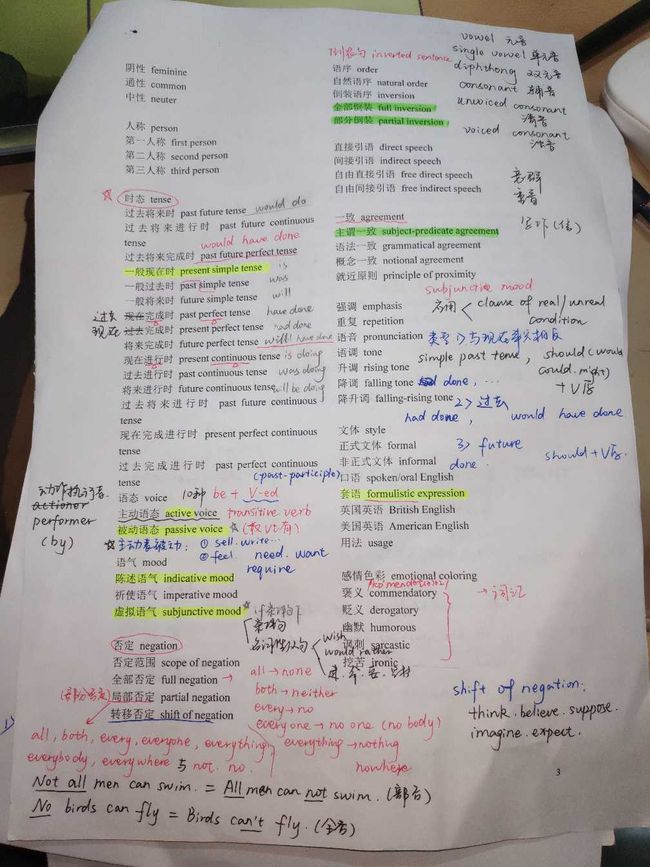 阴性 feminine
通性 common
中性 neuter
人称 person
第一人称 first person
第二人称 second person
第三人称 third person
☆ 时态 tense
过去将来时 past future tense would do
过去将来进行时 past future continuous
tense
would have done
过去将来完成时 past future perfect tense
一般现在时 present simple tense is
一般过去时 past simple tense was
一般将来时 future simple tense will
过去 现在完成时 past perfect tense have done
现在 过去完成时 present perfect tense had done
将来完成时 future perfect tense will have done
现在进行时 present continuous tense is doing
过去进行时 past continuous tense was doing
将来进行时 future continuous tense will be doing
过去将来进行时 past future continuous
tense
现在完成进行时 present perfect continuous
tense
过去完成进行时 past perfect continuous
tense
(past-participle)
语态 voice 10种 be + V-ed
主动语态 active voice transitive verb
被动语态 passive voice ☆ (及vt有)
动作执行者
actioner
performer
(by)
☆ 主动表被动: ① sell. write...
② feel. need. want
require
语气 mood
陈述语气 indicative mood
祈使语气 imperative mood
虚拟语气 subjunctive mood ☆
条件句
名词性从句
wish
would rather
否定 negation
否定范围 scope of negation
全部否定 full negation → all → none
(部分否定) 局部否定 partial negation both → neither
转移否定 shift of negation every → no
everyone → no one (no body)
everything → nothing
nowhere
all, both, every, everyone, everything
everybody, everywhere 与 not. no.
Not all men can swim. = All men can not swim. (部否)
No birds can fly = Birds can't fly. (全否)
倒装句 inverted sentence
语序 order
自然语序 natural order
倒装语序 inversion
全部倒装 full inversion
部分倒装 partial inversion
vowel 元音
single vowel 单元音
diphthong 双元音
consonant 辅音
unvoiced consonant
清音
voiced consonant
浊音
直接引语 direct speech
间接引语 indirect speech
自由直接引语 free direct speech
自由间接引语 free indirect speech
一致 agreement
主谓一致 subject-predicate agreement
语法一致 grammatical agreement
概念一致 notional agreement
就近原则 principle of proximity
写作(信)
subjunctive mood
强调 emphasis
重复 repetition
语音 pronunciation
语调 tone
升调 rising tone
降调 falling tone
降升调 falling-rising tone
clause of real/unreal
condition
类型 1> 与现在事实相反
simple past tend, should (would
could. might)
+ V原
done, ...
2> 过去
had done, would have done
3> future
done. should + V原
文体 style
正式文体 formal
非正式文体 informal
口语 spoken/oral English
套语 formulistic expression
英国英语 British English
美国英语 American English
用法 usage
感情色彩 emotional coloring
褒义 commendatory
贬义 derogatory
幽默 humorous
讽刺 sarcastic
挖苦 ironic
→ 词汇
shift of negation:
think. believe. suppose.
imagine. expect.
3